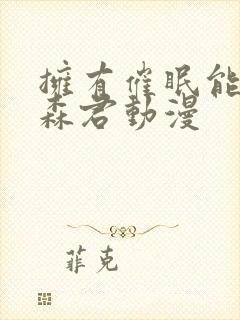 擁有催眠能
森君動漫
菲克